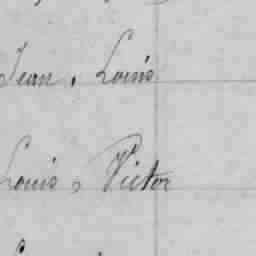 Jean, Louis
Louis, Victor